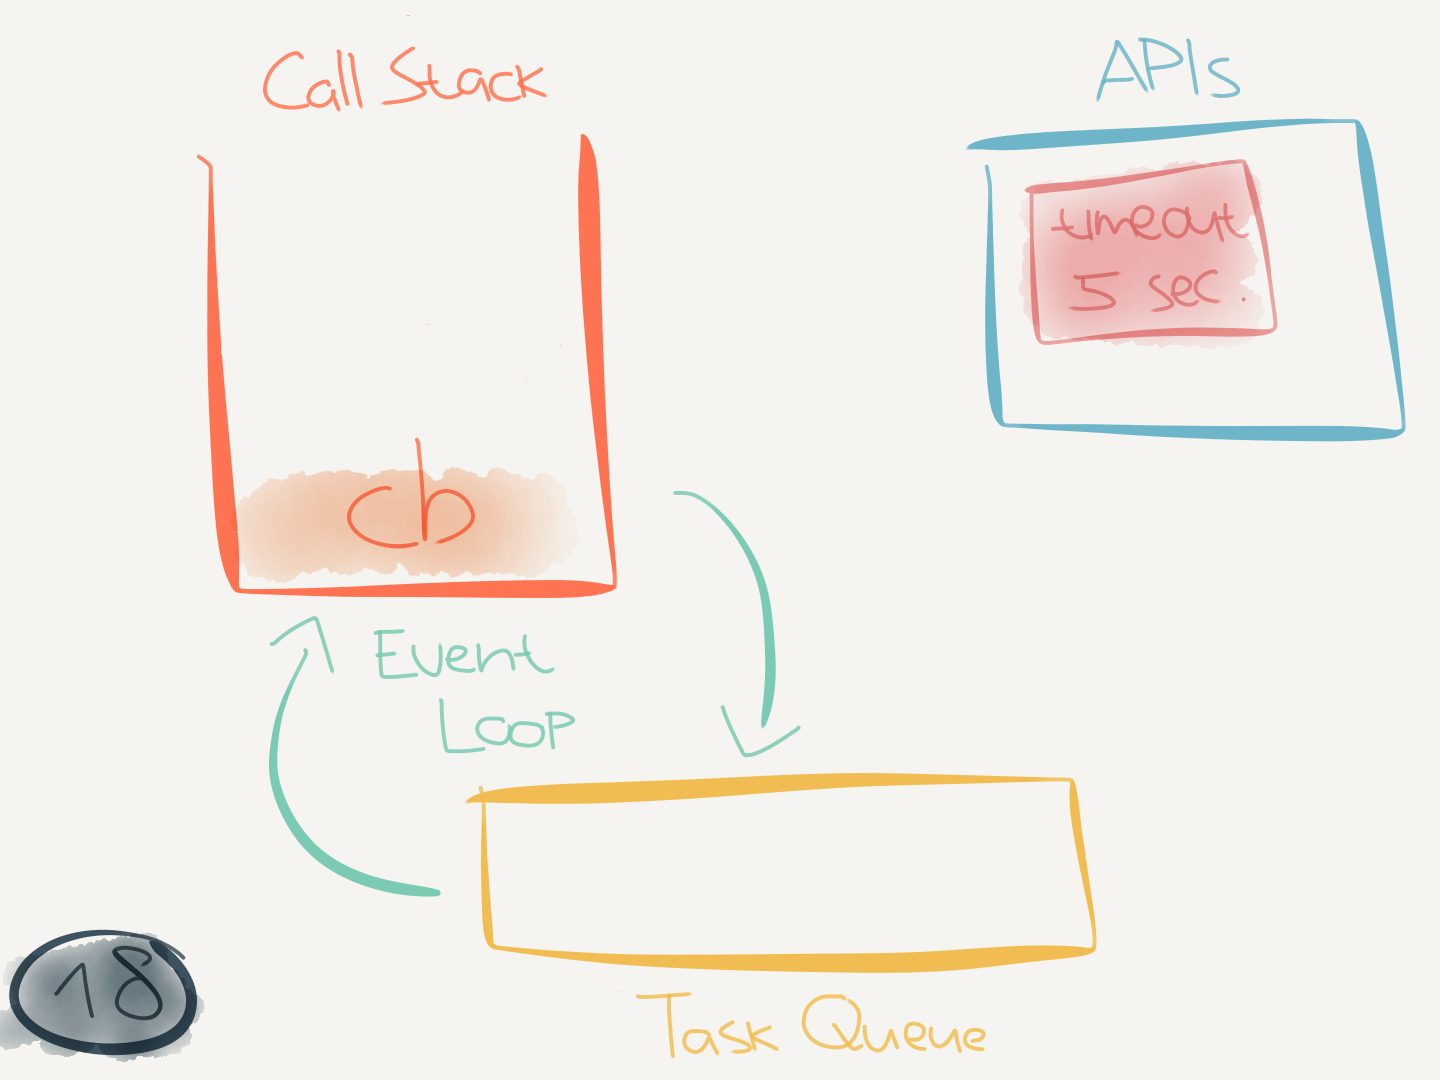 Call Stack
APIs
timeout
5 sec.
cb
Event
Loop
Task Queue
18